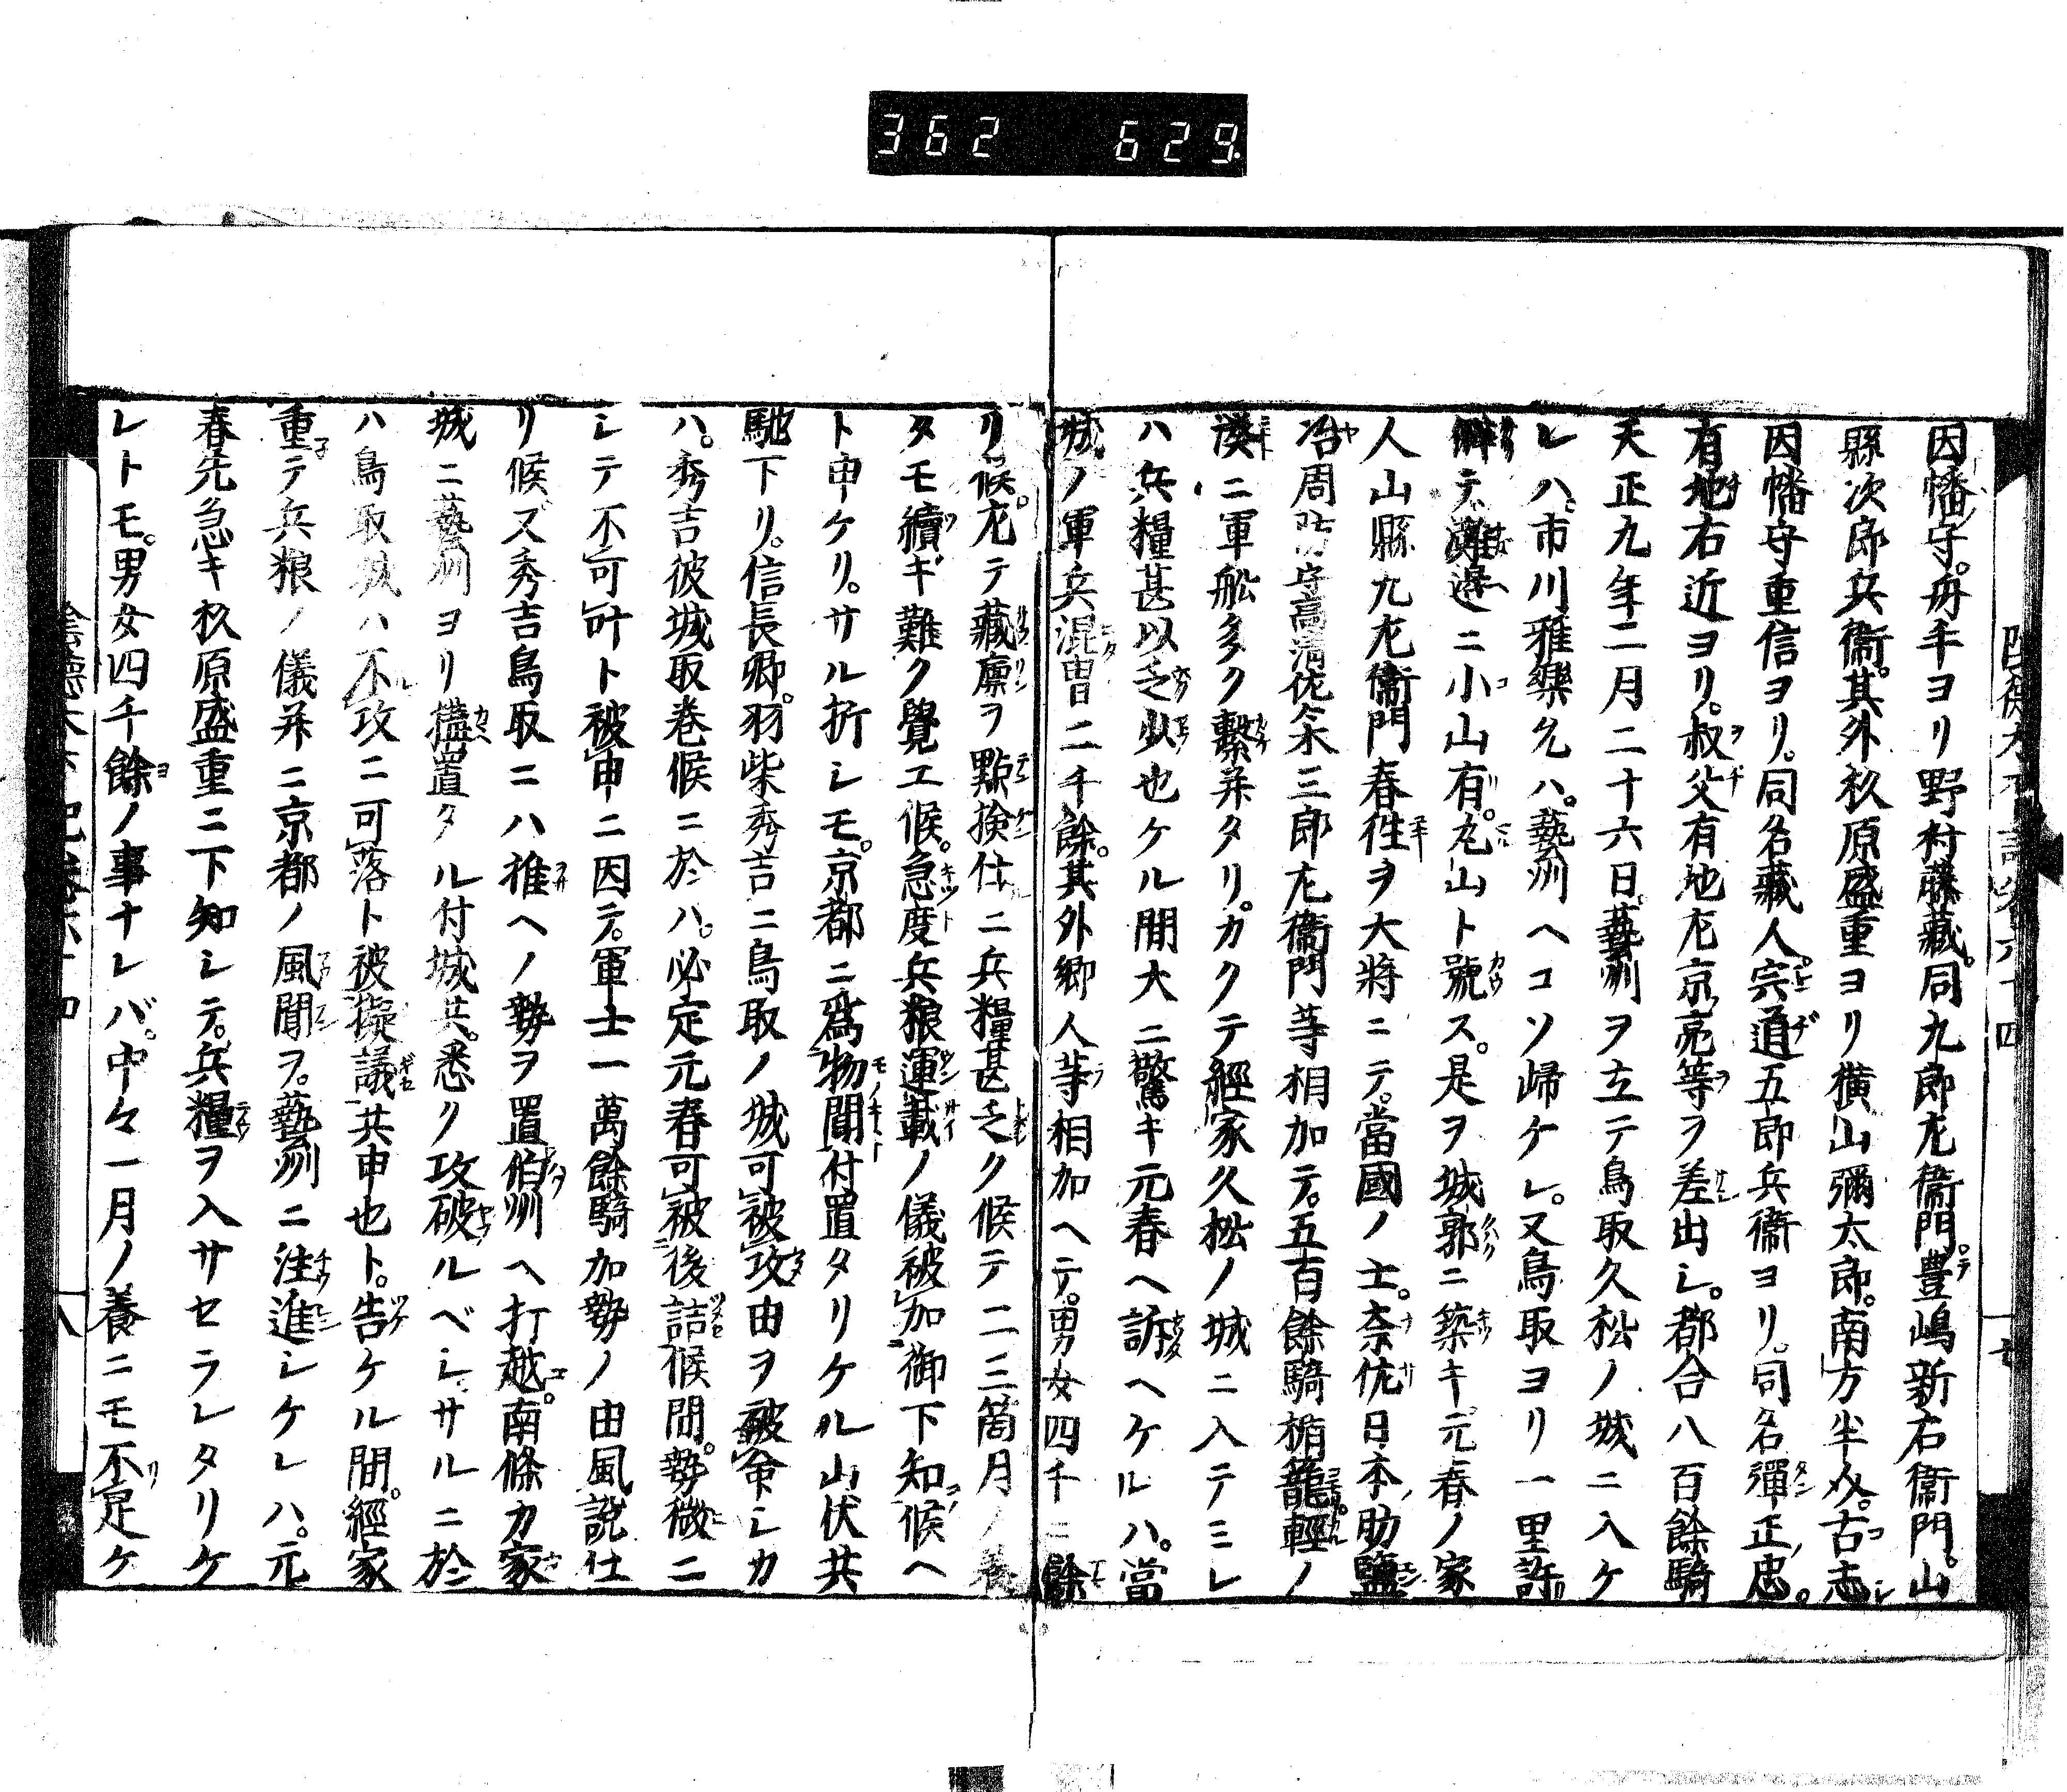 362 629
因幡守。舟手ヨリ野村藤藏。同九郎左衞門。豊嶋新右衞門。山
縣次郎兵衞。其外杦原盛重ヨリ横山彌太郎。南方半介。古志
因幡守重信ヨリ。同名藏人。宗道五郎兵衞ヨリ。同名彈正忠。
有地右近ヨリ。叔父有地左京亮等ヲ差出シ。都合八百餘騎
天正九年二月二十六日。藝洲ヲ立テ鳥取久松ノ城ニ入ケ
レハ。市川雅樂允ハ。藝洲ヘコソ帰ケレ。又鳥取ヨリ一里許
テ灘邊ニ小山有。丸山ト號ス。是ヲ城郭ニ築キ元春ノ家
人山縣九左衞門春徃ヲ大將ニテ。當國ノ士。奈佐日本助鹽
冶周防守高清佐々木三郎左衞門等相加テ。五百餘騎楯籠輕ノ
湊ニ軍舩多ク繫并タリ。カクテ經家久松ノ城ニ入テミレ
ハ兵糧甚以乏少也ケル間大ニ驚キ元春ヘ訴ヘケルハ。當
城ノ軍兵混冑二千餘。其外郷人等相加ヘテ。男女四千ニ餘
リ候。左テ藏廩ヲ點撿仕ニ兵糧甚乏ク候テ二三箇月ノ養
タモ續ギ難ク覺エ候。急度兵粮運載ノ儀被加御下知候ヘ
ト申ケリ。サル折シモ。京都ニ爲物聞付置タリケル山伏共
馳下リ。信長卿。羽柴秀吉ニ鳥取ノ城可被攻由ヲ被命シカ
ハ。秀吉彼城取巻候ニ於ハ。必定元春可被後詰候間。勢微ニ
シテ不可叶ト被申ニ因テ。軍士一萬餘騎加勢ノ由風説仕
リ候。又秀吉鳥取ニハ推ヘノ勢ヲ置伯洲ヘ打越。南條カ家
城ニ藝洲ヨリ搆置タル付城共。悉ク攻破ルベシ。サルニ於
ハ鳥取城ハ不攻ニ可落ト被擬議共申也ト。告ケル間。經家
重テ兵粮ノ儀并ニ京都ノ風聞ヲ。藝洲ニ注進シケレハ。元
春先急キ杦原盛重ニ下知シテ。兵糧ヲ入サセラレタリケ
レトモ。男女四千餘ノ事ナレバ。中々一月ノ養ニモ不足ケ